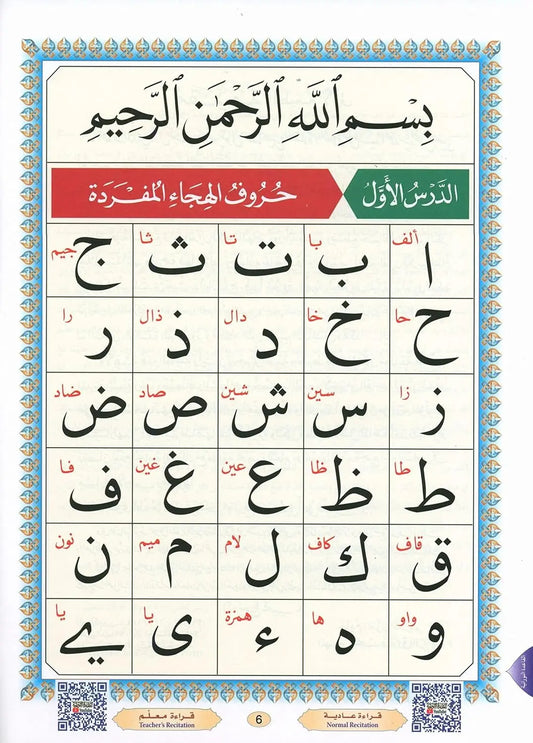 بِسْمِ ٱللَّهِ ٱلرَّحْمَٰنِ ٱلرَّحِيمِ
الدَّرْسُ الأَوَّلُ حُرُوفُ الهِجَاءِ المُفْرَدَةِ
ألف با تا ثا جيم
ا ب ت ث ج
حا خا دال ذال را
ح خ د ذ ر
زا سين شين صاد ضاد
ز س ش ص ض
طا ظا عين غين فا
ط ظ ع غ ف
قاف كاف لام ميم نون
ق ك ل م ن
واو ها همزة يا يا
و ه ء ى ے
قراءة عادية 6 قراءة معلم
Normal Recitation Teacher's Recitation